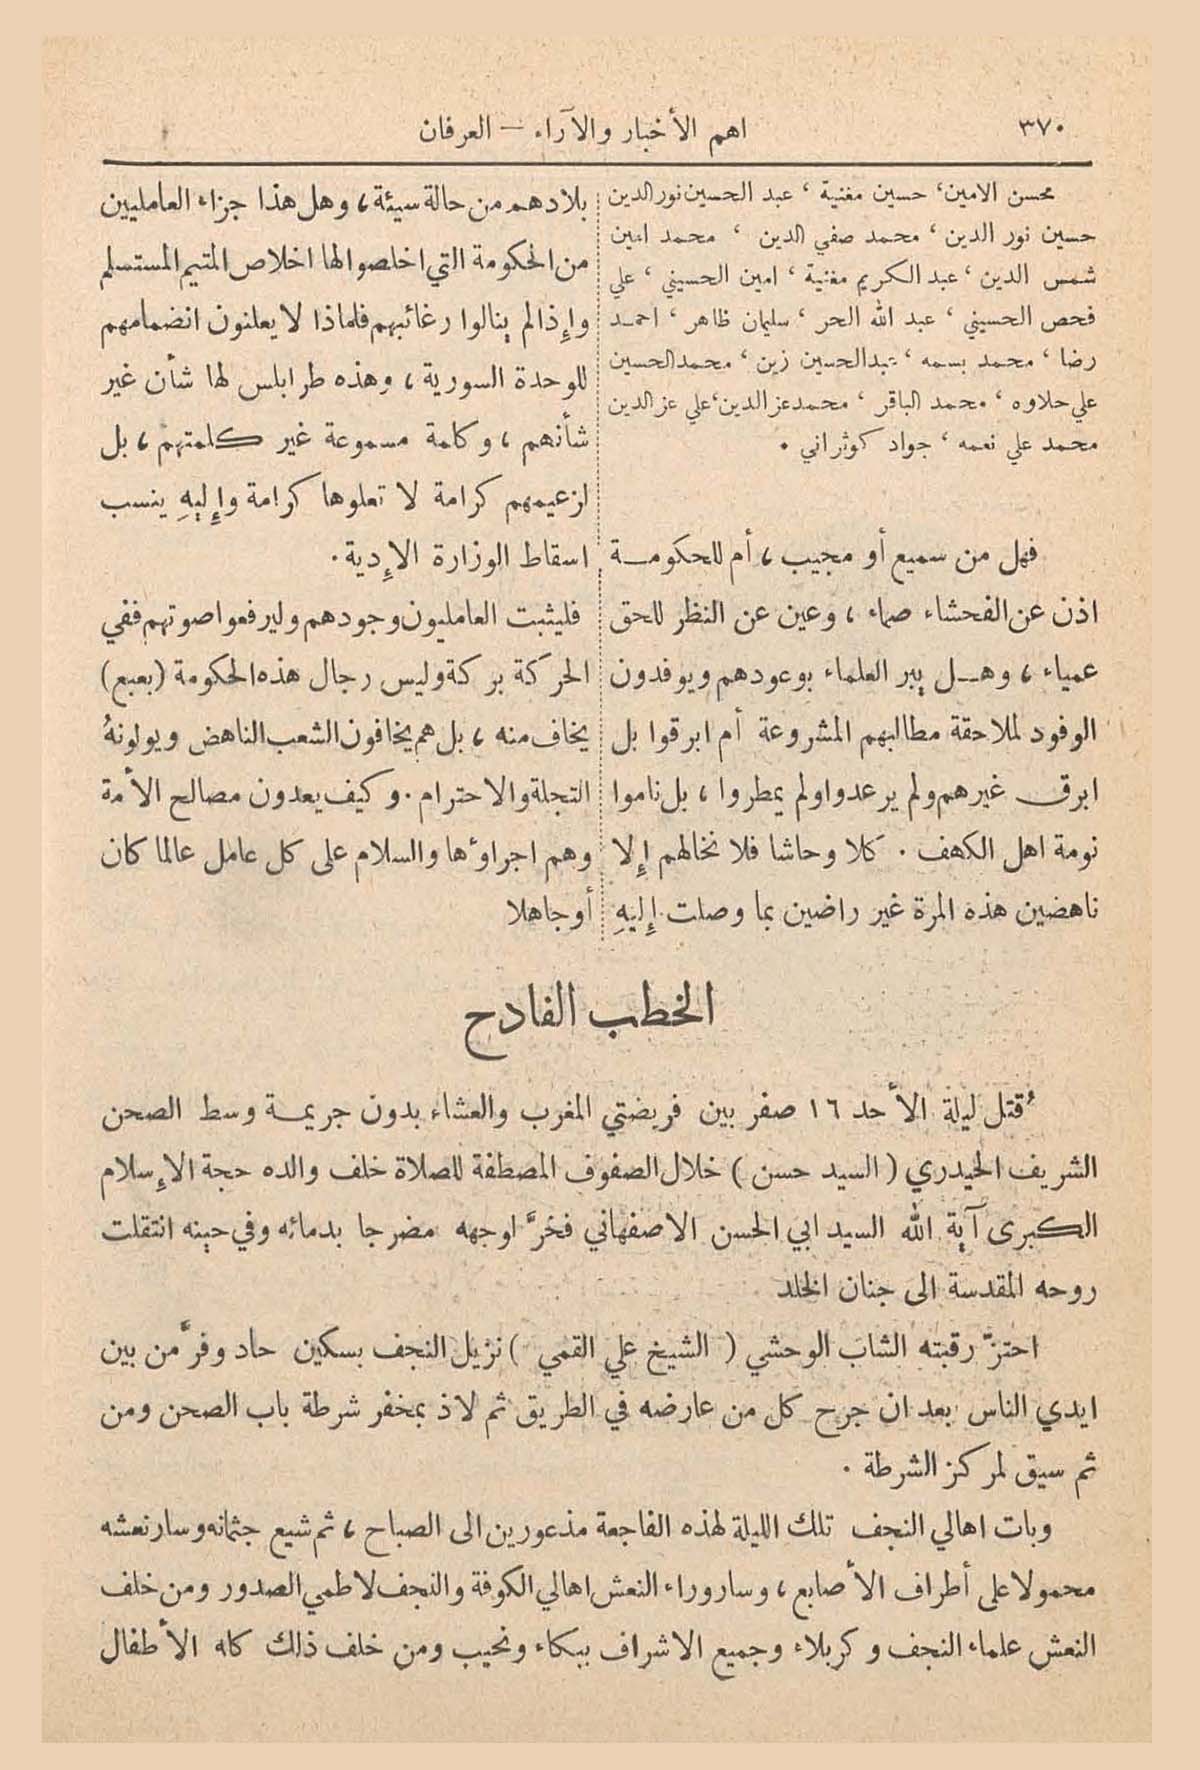 ٣٧٠
اهم الأخبار والآراء – العرفان
محسن الامين، حسين مغنية، عبد الحسين نور الدين
حسين نور الدين، محمد صفي الدين، محمد امين
شمس الدين، عبد الكريم مغنية، امين الحسيني، علي
فحص الحسيني، عبد الله الحر، سليمان ظاهر، احمـد
رضا، محمد بسمه، عبدالحسين زين، محمدالحسين
علي حلاوه، محمد الباقر، محمدعز الدين، علي عز الدين
محمد علي نعمه، جواد كوثراني.
فهل من سميع أو مجيب، أم للحكومــة
اذن عن الفحشاء صماء، وعين عن النظر للحق
عمياء، وهــل يبر العلماء بوعودهم ويوفدون
الوفود لملاحقة مطالبهم المشروعة أم ابرقوا بل
ابرق غيرهم ولم يرعدوا ولم يمطروا، بل ناموا
نومة اهل الكهف. كلا وحاشا فلا نخالهم إلا
ناهضين هذه المرة غير راضين بما وصلت إليهِ
بلادهم من حالة سيئة، وهل هذا جزاء العامليين
من الحكومة التي اخلصوا لها اخلاص المتيم المستسلم
وإذا لم ينالوا رغائبهم فلماذا لا يعلنون انضمامهم
للوحدة السورية، وهذه طرابلس لها شأن غير
شأنهم، وكلمة مسموعة غير كلمتهم، بل
لزعيمهم كرامة لا تعلوها كرامة وإليهِ ينسب
اسقاط الوزارة الإدية.
فليثبت العامليون وجودهم وليرفعوا صوتهم ففي
الحركة بركة وليس رجال هذه الحكومة (بعبع)
يخاف منه، بل هم يخافون الشعب الناهض ويولونهُ
التجلة والاحترام. وكيف يعدون مصالح الأمة
وهم اجراوءها والسلام على كل عامل عالما كان
أو جاهلا
الخطب الفادح
قُتل ليلة الأحد ١٦ صفر بين فريضتي المغرب والعشاء بدون جريمــة وسط الصحن
الشريف الحيدري (السيد حسن) خلال الصفوف المصطفة للصلاة خلف والده حجة الإسلام
الكبرى آية الله السيد ابي الحسن الاصفهاني فخرَّ لوجهه مضرجا بدمائه وفي حينه انتقلت
روحه المقدسة الى جنان الخلد
احتزّ رقبته الشاب الوحشي (الشيخ علي القمي) نزيل النجف بسكين حاد وفرَّ من بين
ايدي الناس بعد ان جرح كل من عارضه في الطريق ثم لاذ بمخفر شرطة باب الصحن ومن
ثم سيق لمركز الشرطة.
وبات اهالي النجف تلك الليلة لهذه الفاجعة مذعورين الى الصباح، ثم شيع جثمانه وسار نعشه
محمولا على أطراف الأصابع، وسار وراء النعش اهالي الكوفة والنجف لاطمي الصدور ومن خلف
النعش علماء النجف وكربلاء وجميع الاشراف ببكاء ونحيب ومن خلف ذلك كله الأطفال